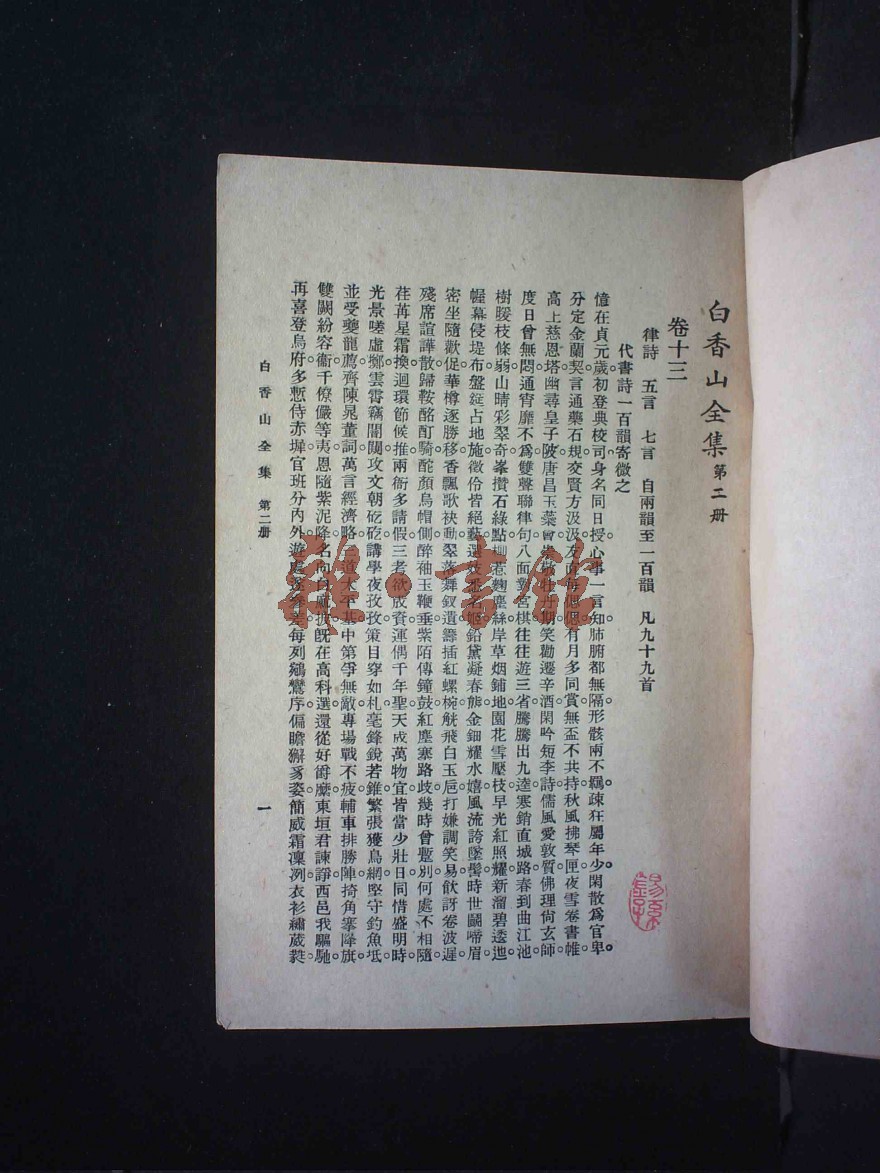 白香山全集 第二册
卷十三
律詩 五言 七言 自兩韻至一百韻 凡九十九首
代書詩一百韻寄微之
憶在貞元歲初登典校司身名同日授心事一言知肺腑都無隔形骸兩不羈疎狂屬年少閑散爲官卑
分定金蘭契言通藥石規交賢方汲汲友直每偲偲有月多同賞無盃不共持秋風拂琴匣夜雪卷書帷
高上慈恩塔幽尋皇子陂唐昌玉蘂會崇敬牡丹期笑勸遷辛酒閑吟短李詩儒風愛敦質佛理尙玄師
度日曾無悶通宵靡不爲雙聲聯律句八面對宮棋往往遊三省騰騰出九逵寒銷直城路春到曲江池
樹暖枝條弱山晴彩翠奇峯攢石綠點柳惹麴塵絲岸草烟鋪地園花雪壓枝早光紅照耀新溜碧逶迤
幄幕侵堤布盤筵占地施徵伶皆絕藝選妓悉名姬鉛黛凝春態金鈿耀水嬉風流誇墜髻時世鬭啼眉
密坐隨歡促華樽逐勝移香飄歌袂動翠落舞釵遺籌插紅螺椀觥飛白玉巵打嫌調笑易飲訝卷波遲
殘席諠譁散歸鞍酩酊騎酡顏烏帽側醉袖玉鞭垂紫陌傳鐘鼓紅塵塞路歧幾時曾蹔別何處不相隨
荏苒星霜換迴環節候推兩衙多請假三考欲成資運偶千年聖天成萬物宜皆當少壯日同惜盛明時
光景嗟虛擲雲霄竊闇闚攻文朝矻矻講學夜孜孜策目穿如札毫鋒銳若錐繁張獲鳥網堅守釣魚坻
並受夔龍薦齊陳晁董詞萬言經濟略三道太平基中第爭無敵專場戰不疲輔車排勝陣掎角搴降旗
雙闕紛容衞千僚儼等夷恩隨紫泥降名向白麻披旣在高科選還從好爵縻東垣君諫諍西邑我驅馳
再喜登烏府多慙侍赤墀官班分內外遊處遂參差每列鵷鸞序偏瞻獬豸姿簡威霜凜冽衣衫繡葳蕤
白香山全集 第二册
一